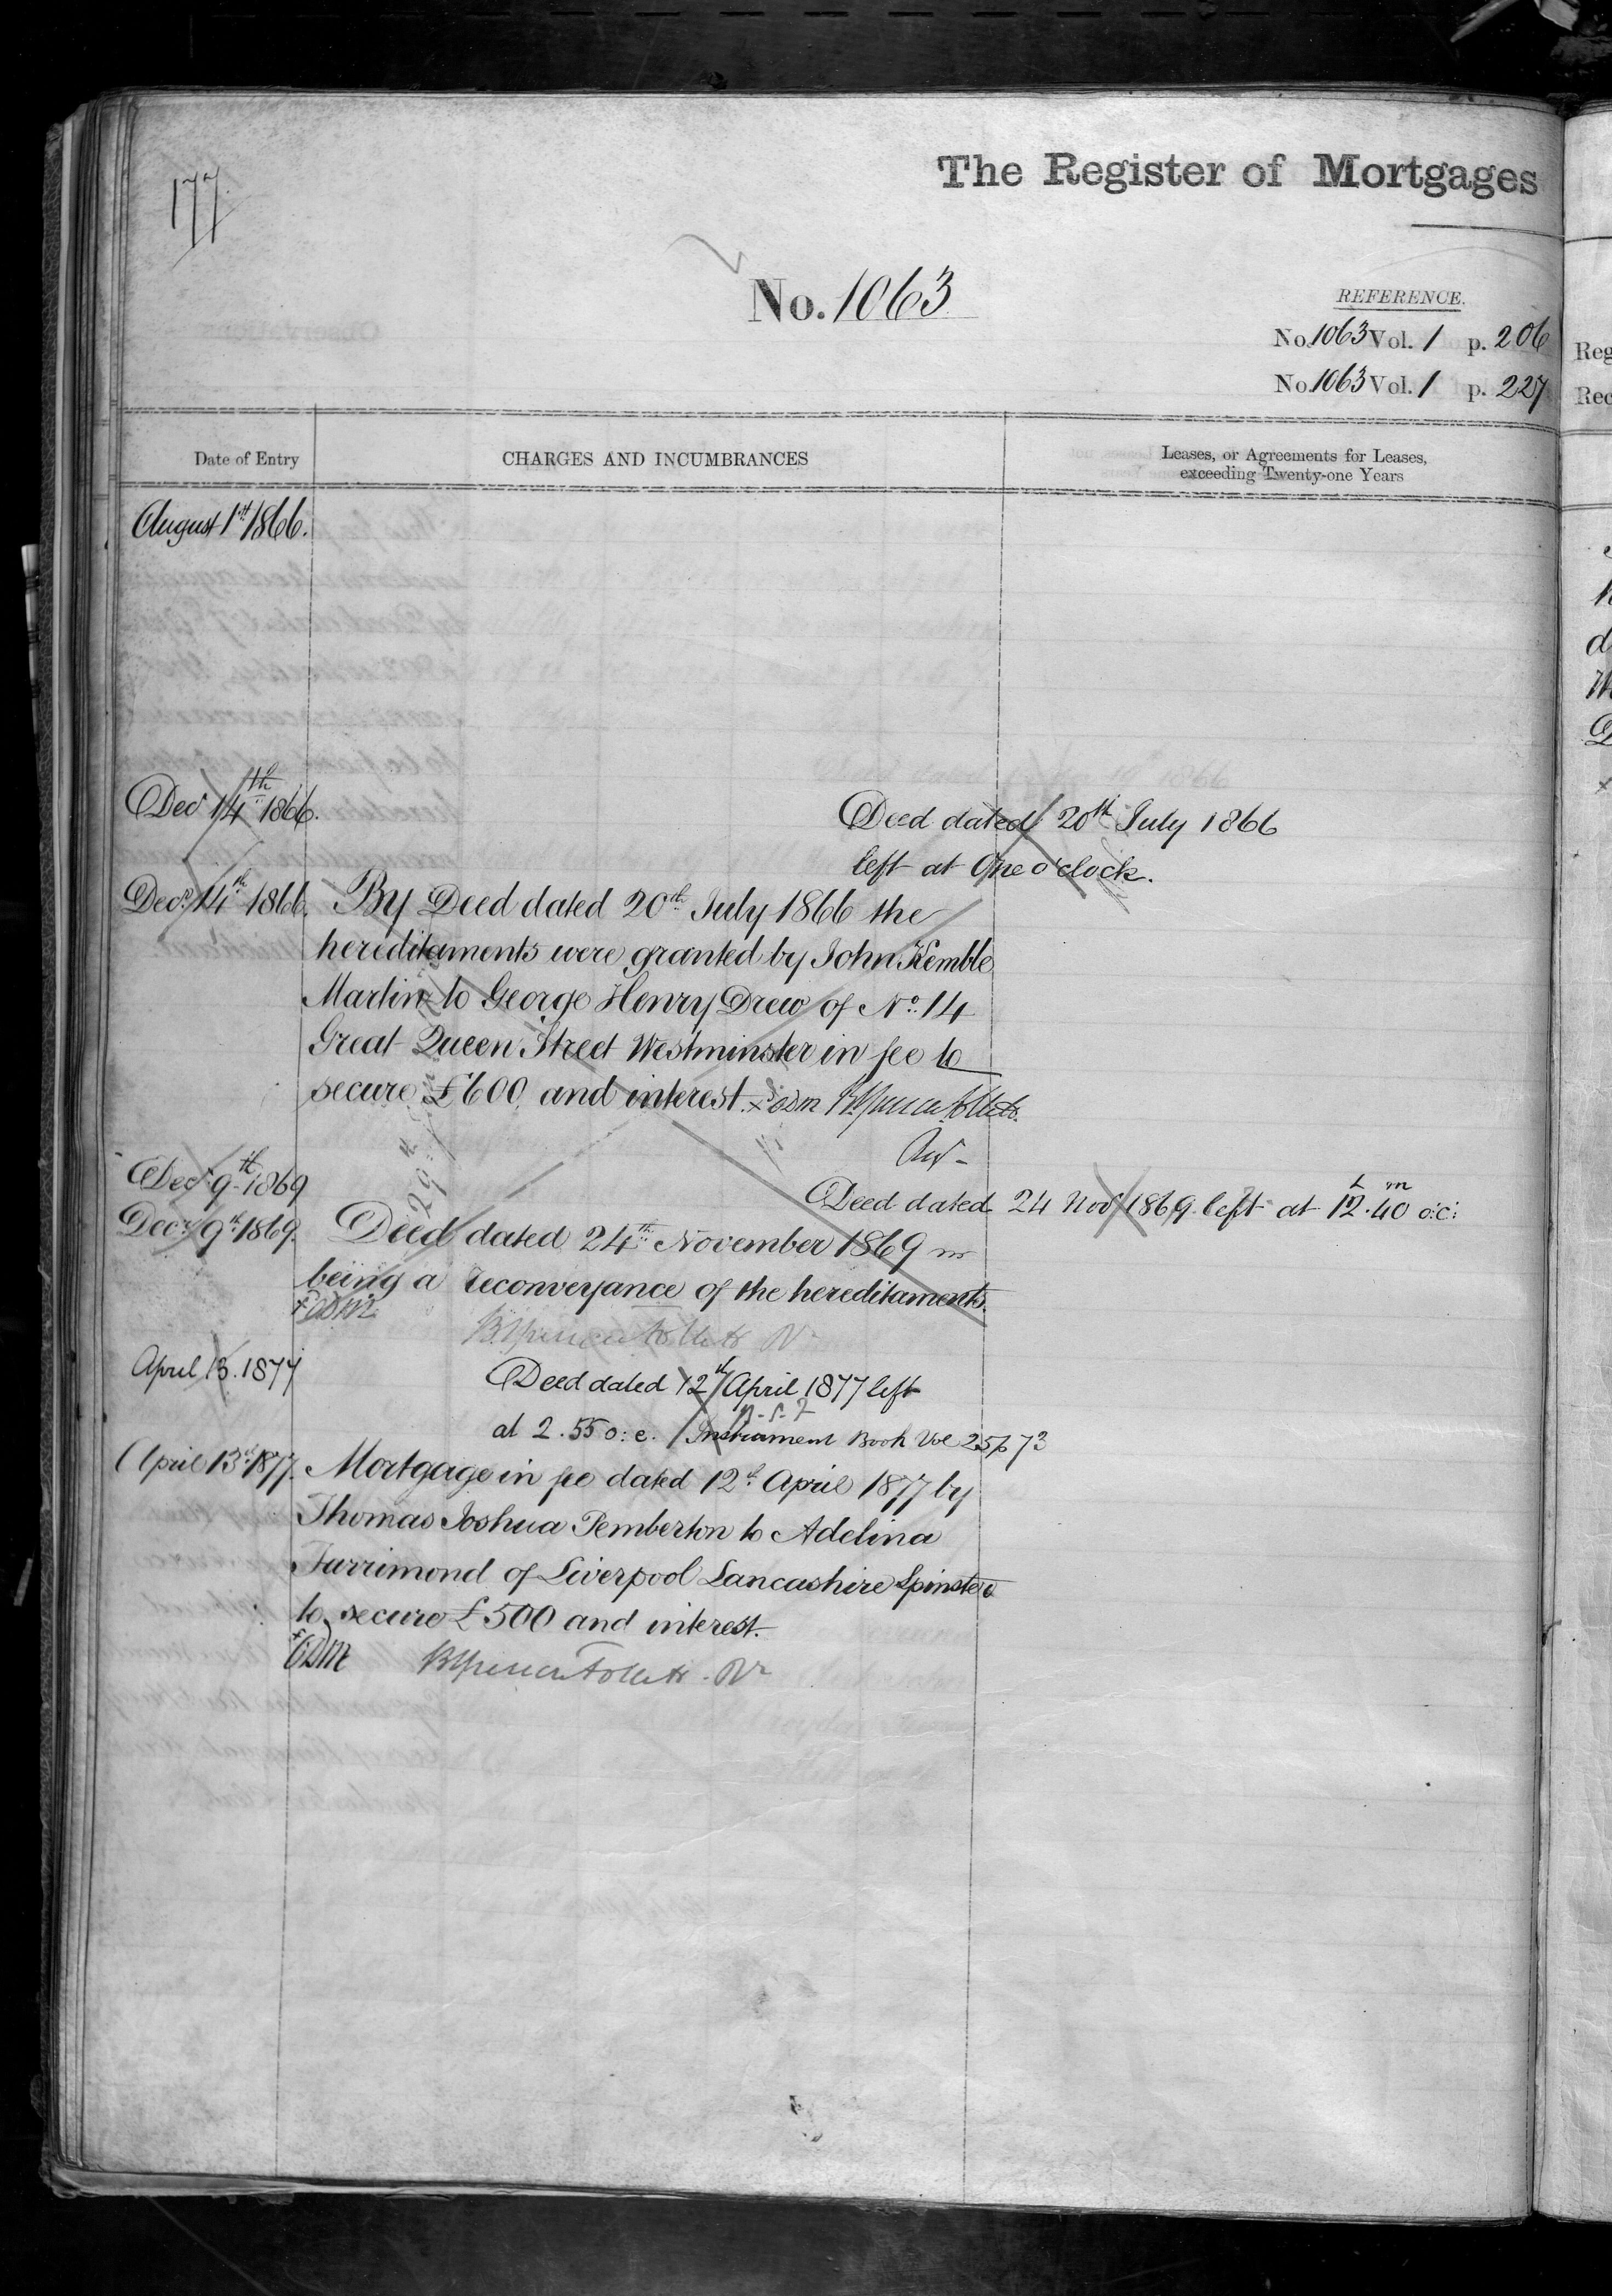 177.
The Register of Mortgages
No. 1063
REFERENCE.
No. 1063 Vol. 1 p. 206
No. 1063 Vol. 1 p. 227
Date of Entry
CHARGES AND INCUMBRANCES
Leases, or Agreements for Leases,
exceeding Twenty-one Years
August 1st 1866.
Decr 14th 1866.
Deed dated 20th July 1866
left at One o'clock.
Decr. 14th 1866. By Deed dated 20th July 1866 the
hereditaments were granted by John Kemble
Martin to George Henry Drew of No. 14
Great Queen Street Westminster in fee to
secure £600 and interest.
Decr 9th 1869
Deed dated 24 Novr 1869 left at 12h.40m o:c:
Decr. 9th 1869. Deed dated 24th November 1869
being a reconveyance of the hereditaments.
April 13. 1877
Deed dated 12th April 1877 left
at 2.55 o:c. Instrument Book Vol 25 p 73
April 13th 1877. Mortgage in fee dated 12th April 1877 by
Thomas Joshua Pemberton to Adelina
Farrimond of Liverpool Lancashire Spinster
to secure £500 and interest.
Reg
Rec